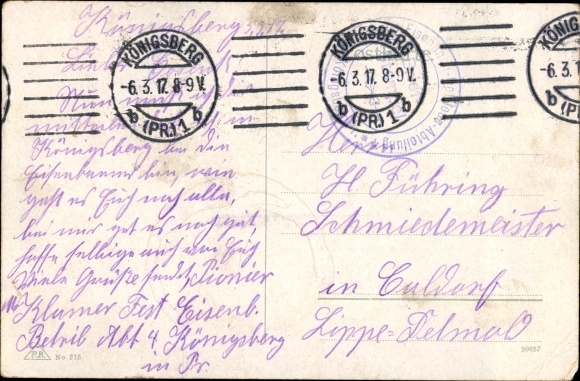 Königsberg 5.3.17.
Liebe
Nun
mitteilen
Königsberg bei den
Eisenbauner bin, wie
geht es Euch noch alle,
bei mir get es noch gut,
hoffe selbige auch von Euch
Viele Grüße sendt Pionier
Klamer Fest Eisenb.
Betrib Abt 4. Königsberg
in Pr.
KÖNIGSBERG
-6.3.17. 8-9V.
b (PR.) 1 b
KÖNIGSBERG
-6.3.17. 8-9V.
b (PR.) 1 b
KÖNIGSBERG
-6.3.1
b (PR.)
Abteilung
Herrn
H Führing
Schmiedemeister
in Caldorf
Lippe-Detmold
P.R. No. 515
20657